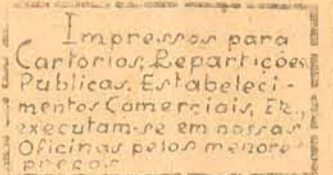 Impressos para
Cartorios, Repartições
Publicas, Estabeleci-
mentos Comerciais, Etc,
executam-se em nossas
Oficinas pelos menore
preços